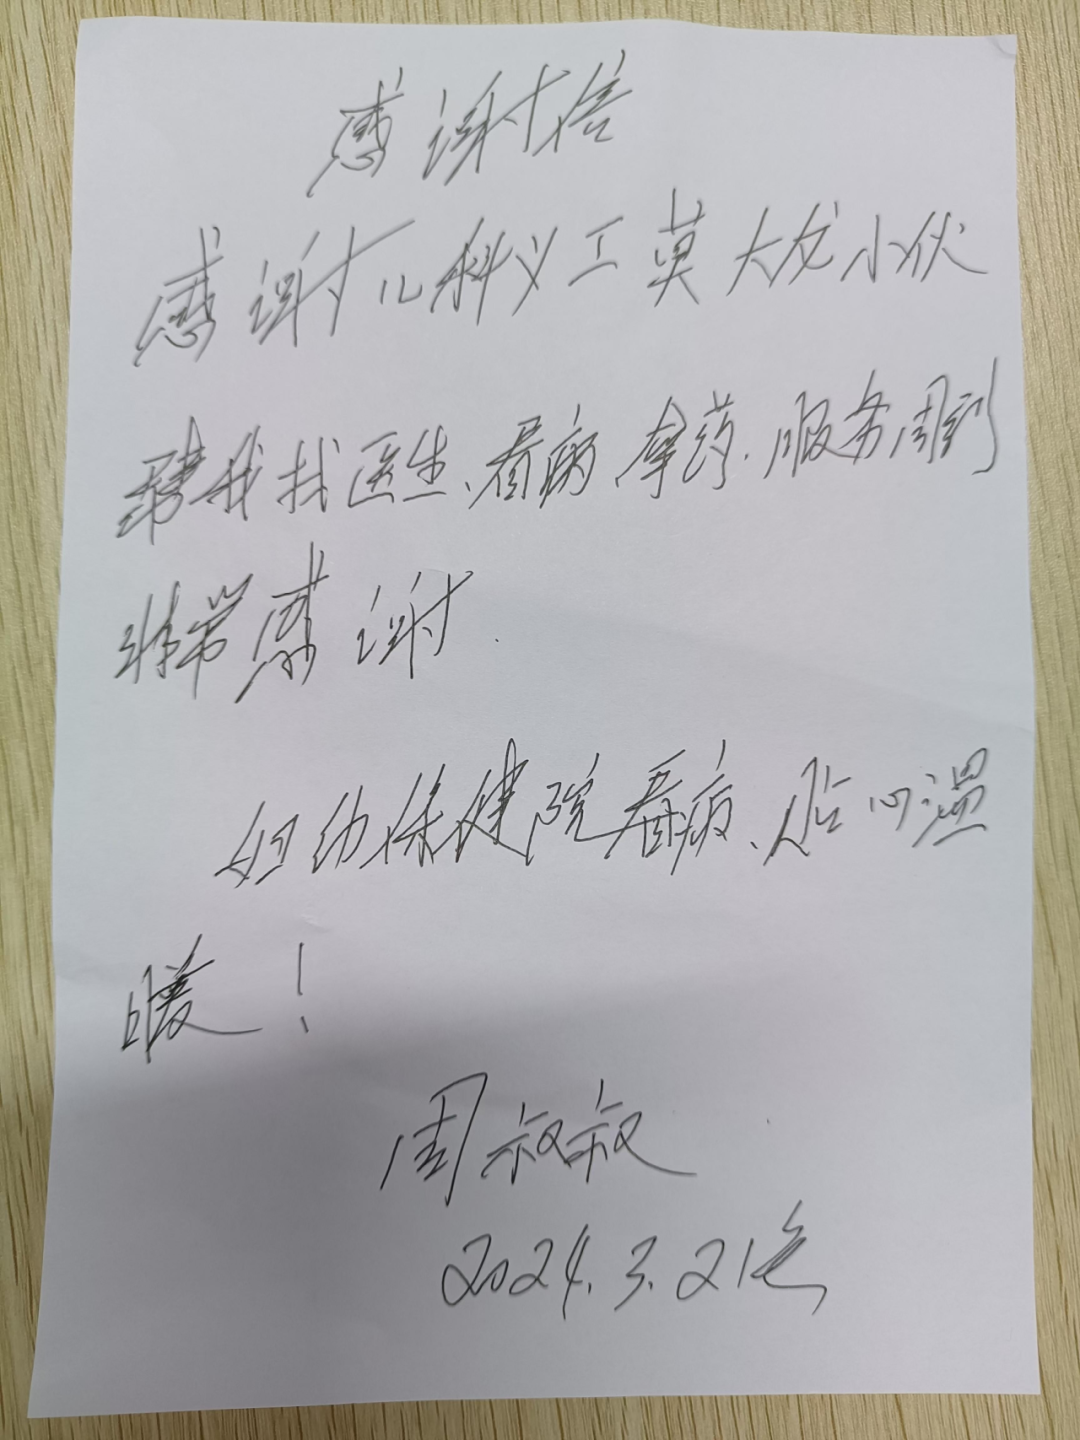 感谢信
感谢儿科义工莫大龙小伙
帮我找医生、看病、拿药.服务周到
非常感谢.
妇幼保健院看病、贴心温
暖!
周叔叔
2024.3.21